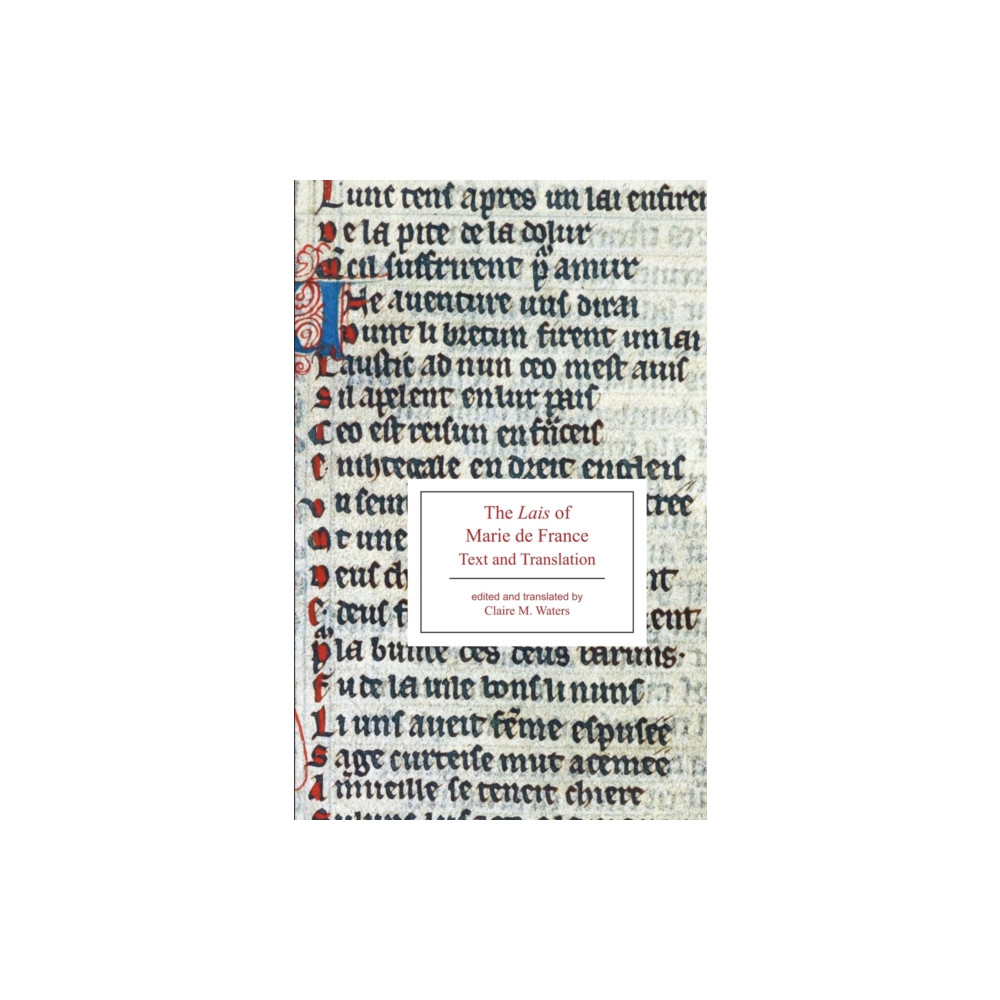 Lunc tens apres un lai
De la pite de la dolur
cil suffrirent p amur
Ne auenture uus dirai
Dunt li bretun firent un lai
Laustic ad nun ceo mest auis
Si lapelent en lur pais
Ceo est reisun en franceis
E nihtegale en dreit engleis
tree
t une
Deus ch nt
E deus f ent
P la bunte des deus baruns.
Fu de la uile bons li nuns
Li uns aueit feme espusee
Sage curteise mut acemee
A mueille se teneit chiere
The Lais of
Marie de France
Text and Translation
edited and translated by
Claire M. Waters